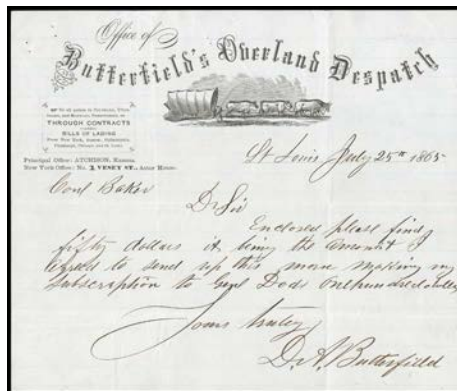 Office of
Butterfield's Overland Despatch
THROUGH CONTRACTS
BILLS OF LADING
From New York, Boston, Philadelphia,
Pittsburgh, Chicago and St. Louis.
Principal Office: ATCHISON, Kansas.
New York Office: No. 3, VESEY ST., Astor House.
St Louis July 25th 1865
Baker
Dr Sir
Enclosed please find
fifty dollars it being the amount I
agreed to send up this morn making my
subscription to Genl Onehundred dollars
Yours truly
D. A. Butterfield